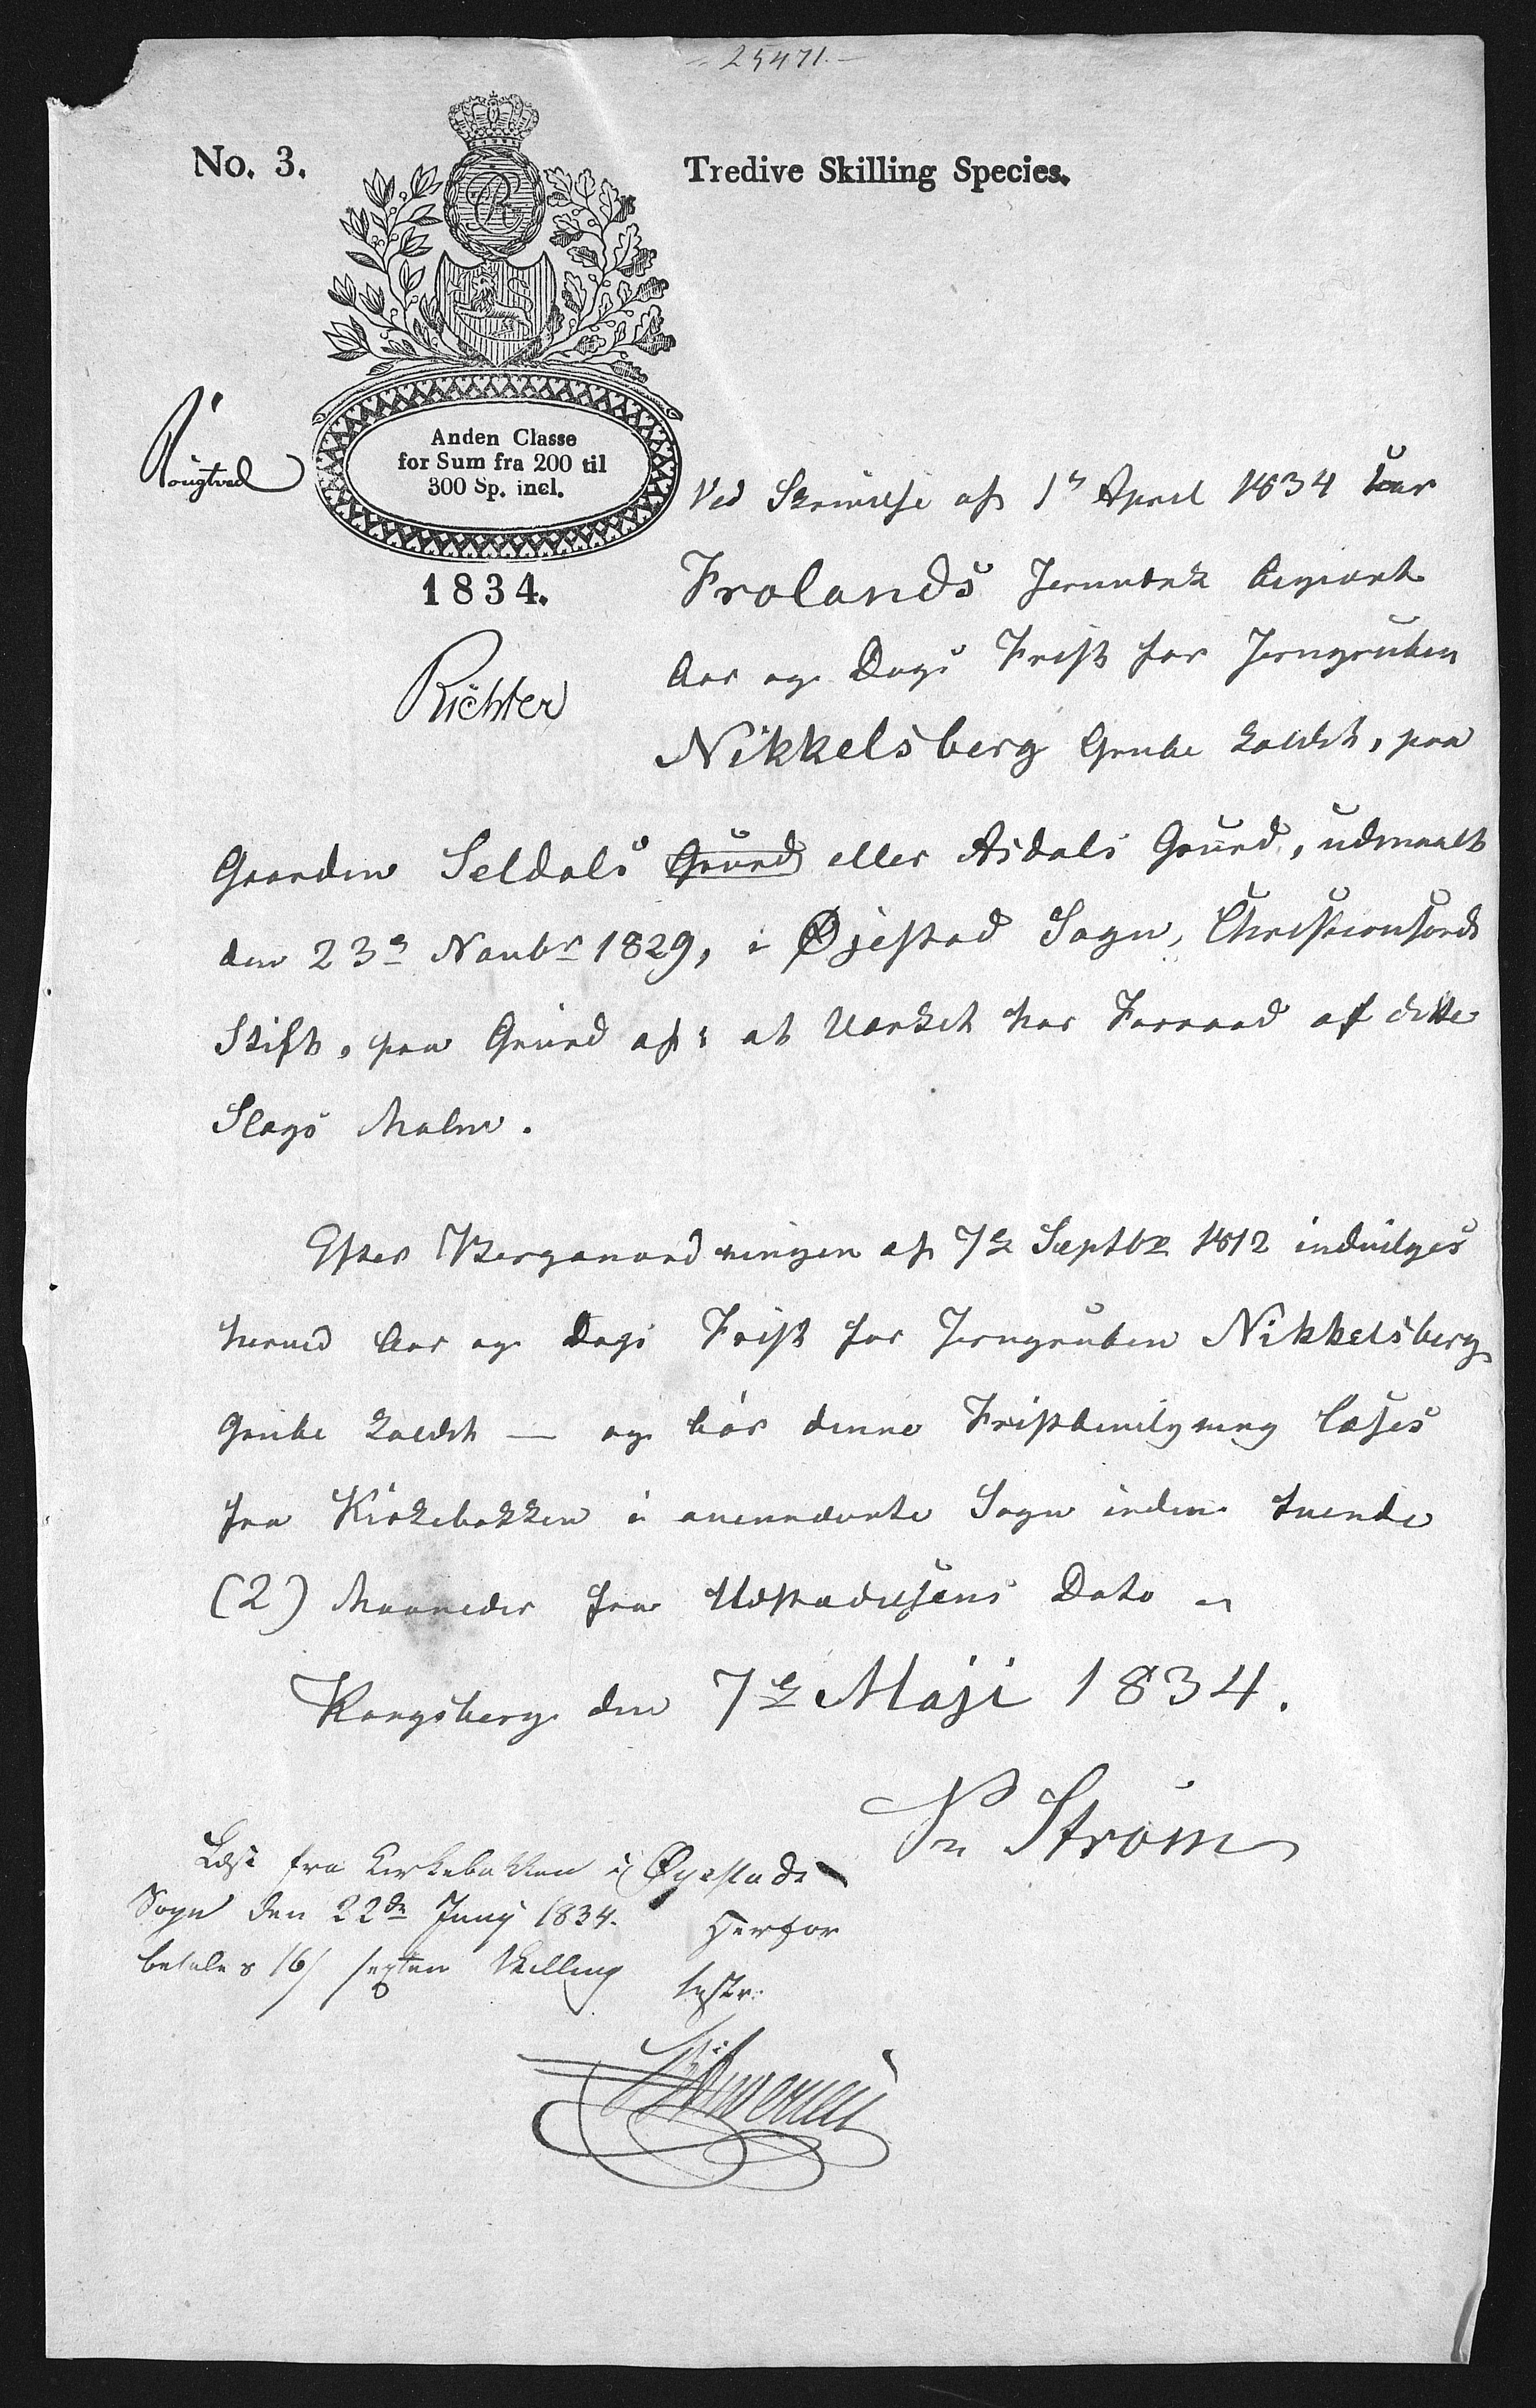 25471.
No. 3.
Tredive Skilling Species.
Anden Classe
for Sum fra 200 til
300 Sp. incl.
1834.
Richter
Ved Skrivelse af 1ste April 1834 har
Frolands Jernværk begjært
Aar og Dags Frist for Jerngruben
Nikkelsberg Grube kaldet, paa
Gaarden Seldals Grund eller Asdals Grund, udmaalt
den 23de Novbr 1829, i Øjestad Sogn, Christiansands
Stift, paa Grund af: at Værket har Forraad af dette
Slags Malm.
Efter Berganordningen af 7de Septbr 1812 indvilges
herved Aar og Dags Frist for Jerngruben Nikkelsberg
Grube kaldet — og bør denne Fristbevilgning læses
fra Kirkebakken i ovennævnte Sogn inden tvende
(2) Maaneder fra Udstædelsens Dato
Kongsberg den 7de Maji 1834.
Strøm
Læst fra Kirkebakken i Øyestads
Sogn den 22de Junij 1834. Herfor
betales 16/ sexten Skilling